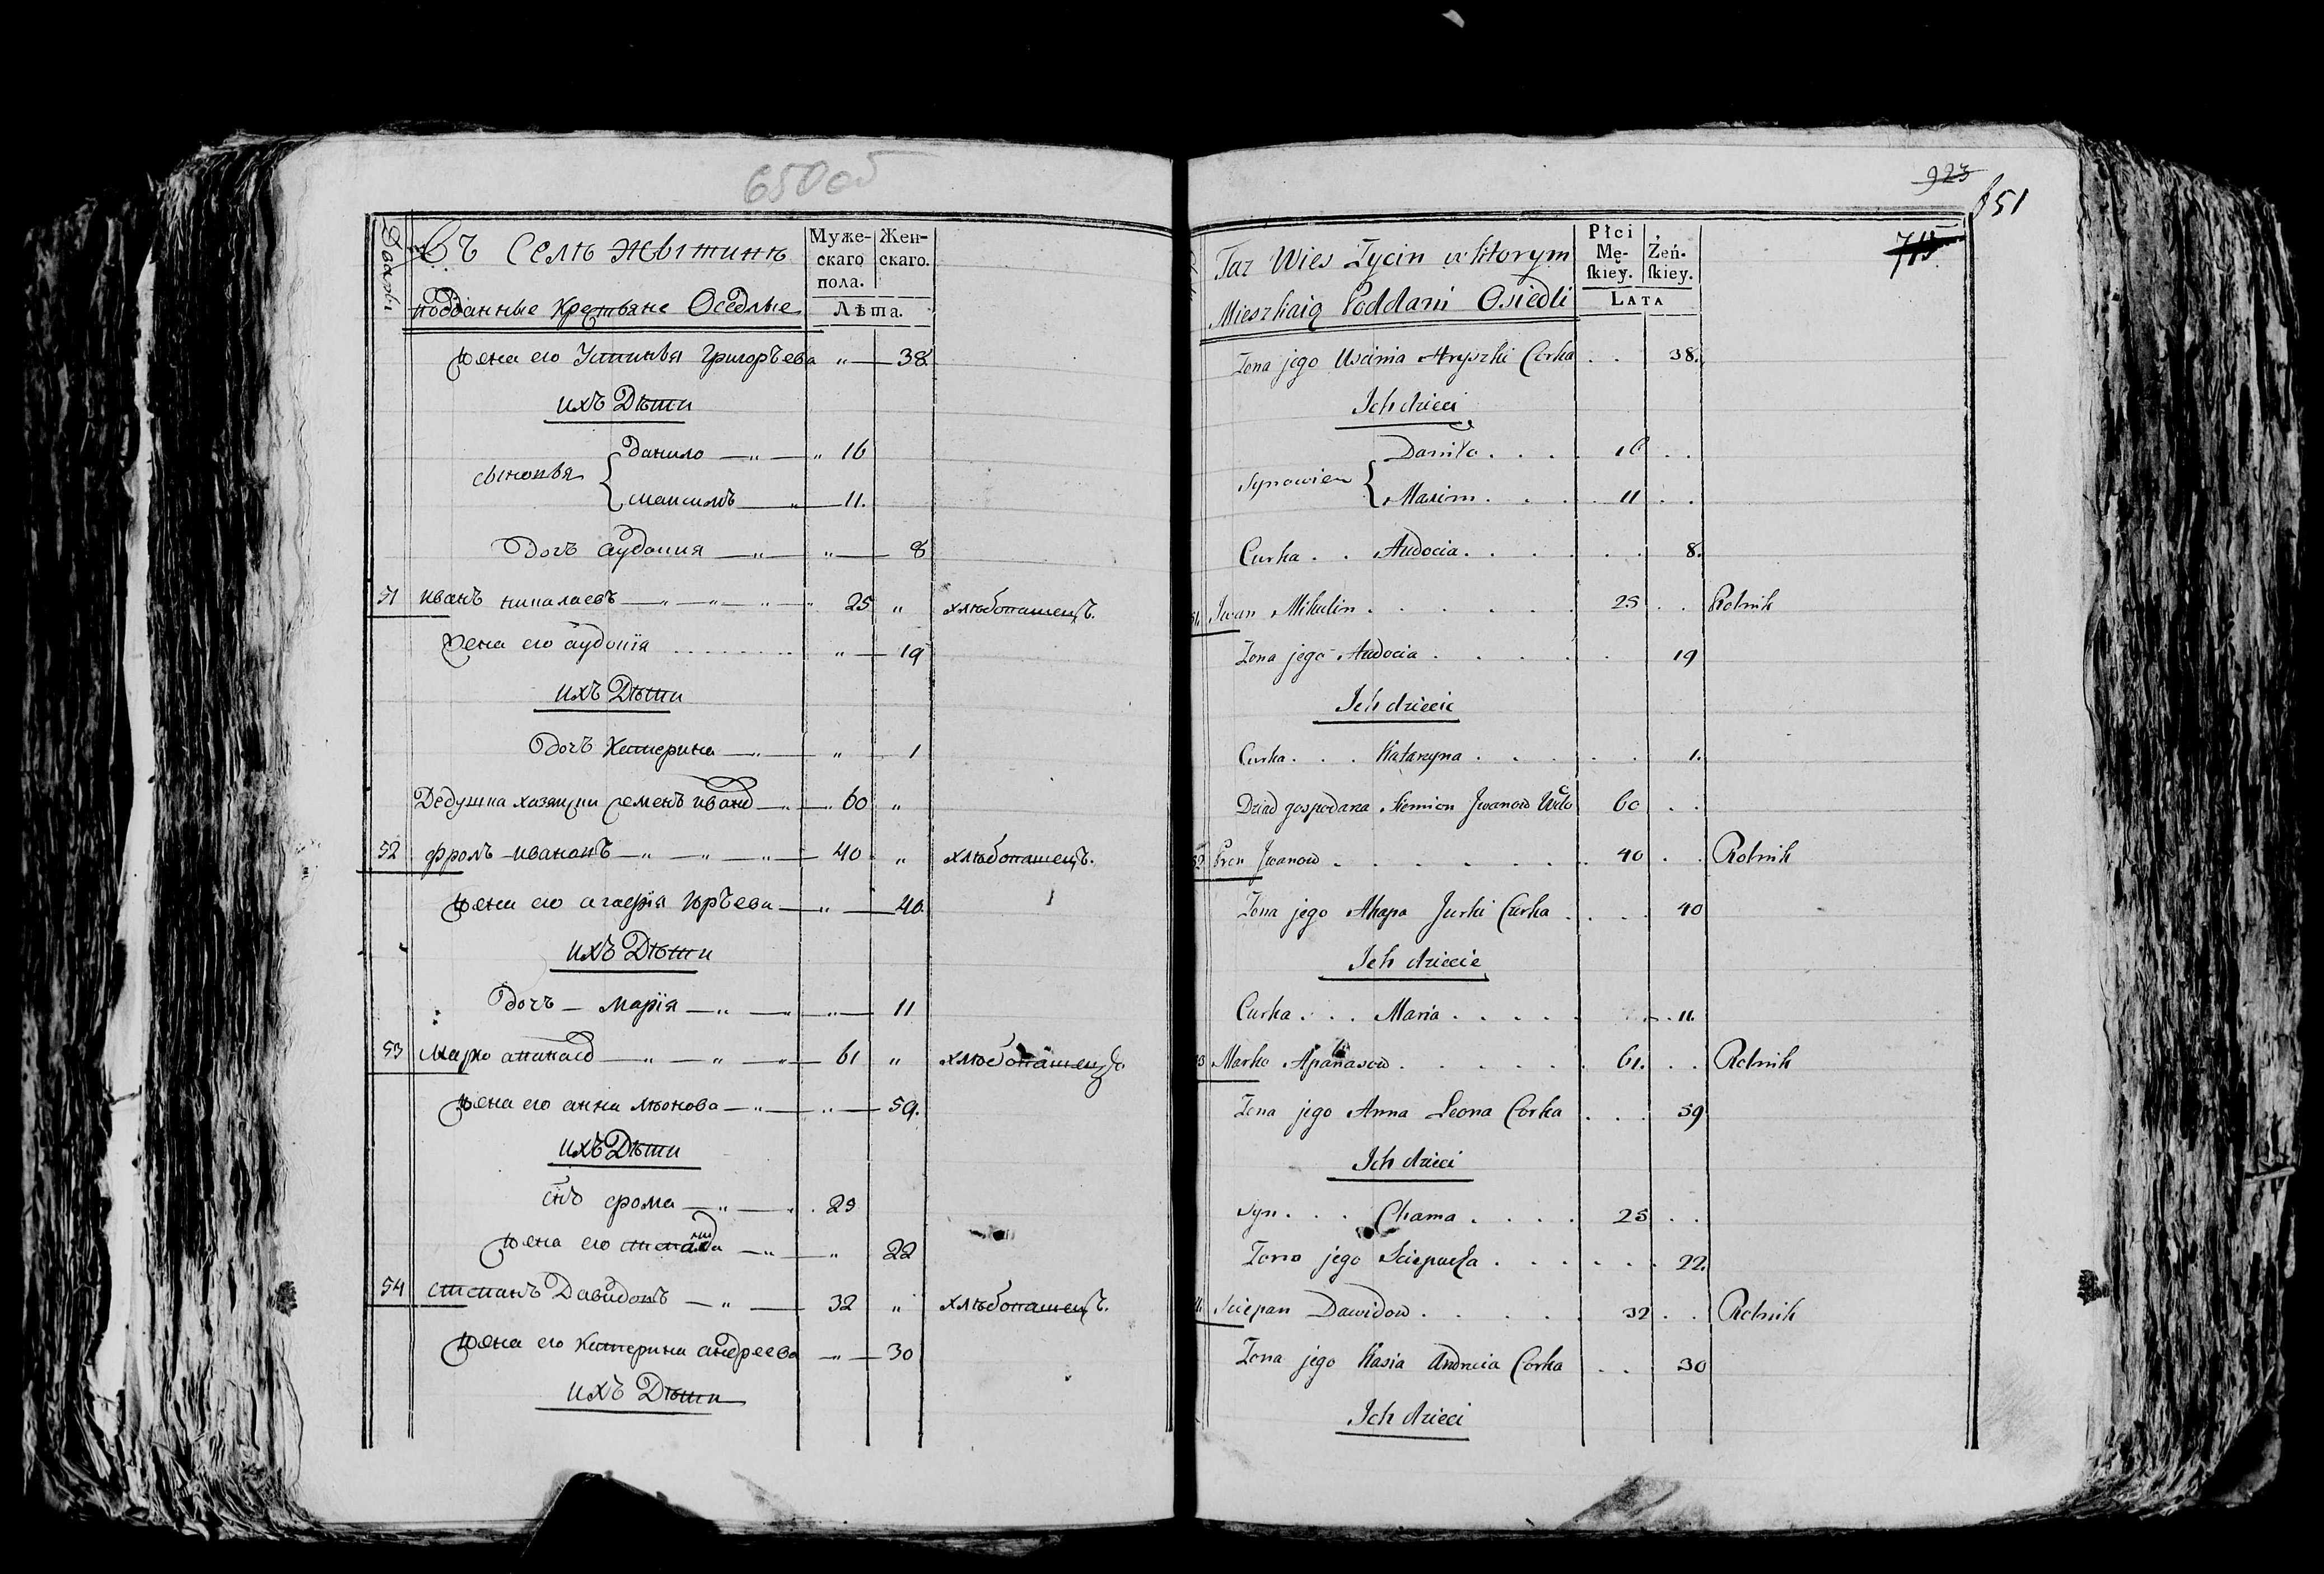 650 об
Въ Селѣ Жытинѣ
подданные Крестьяне Оседлые
Муже-
скаго
пола.
Жен-
скаго.
Лѣта.
Жена его Устинья Григорьева " 38
ихъ Дѣти
Данило " 16
сыновья
Максимъ " 11.
Дочь аудоция " 8
51 иванъ николаевъ 25 " хлѣбопашецъ.
Жена его аудоція " 19
ихъ Дѣти
Дочь Катерина " 1
Дедушка хазяина семенъ иванов 60 "
52 фромъ ивановъ 40 " хлѣбопашецъ.
Жена его агафія юрьева " 40.
ихъ Дѣти
Дочь марія " 11
53 Марко апанасов 61 " хлѣбопашецъ
Жена его анна леонова " 59.
ихъ Дѣти
снъ фрома 25
Жена его степанида " 22
54 степанъ Давидовъ 32 " хлѣбопашецъ.
Жена его Катерина андреева 30
ихъ Дѣти
923
651
715
Taz Wies Zycin w ktorym
Mieszkaią Poddani Osiedli
Płci
Mę-
skiey.
Żeń-
skiey.
LATA
Zona jego Uscinia Hryszki Corka . . 38.
Ich dzieci
Daniło . . . 16 . .
Synowie
Maxim . . . 11 . .
Curka . . Audocia . . . . . 8.
51. Iwan Mikulin . . . . . . 25 . . Rolnik
Zona jego Audocia . . . . . 19
Ich dziecie
Curka . . . Katarzyna . . . . . 1.
Dziad gospodarza Siemion Iwanow Wdo 60 . .
52 From Iwanow . . . . . . . 40 . . Rolnik
Zona jego Ahapa Jurki Curka . . . . 40
Ich dziecie
Curka . . . Maria . . . . . . 11.
53 Marko Apanasow . . . . . . 61. . . Rolnik
Zona jego Anna Leona Corka . . . 59
Ich dzieci
Syn . . . Chama . . . . 25 . .
Zona jego Sciepaeła . . . . . . 22.
Sciepan Dawidow . . . . . 32 . . Rolnik
Zona jego Kasia Andreia Corka . . 30
Ich dzieci